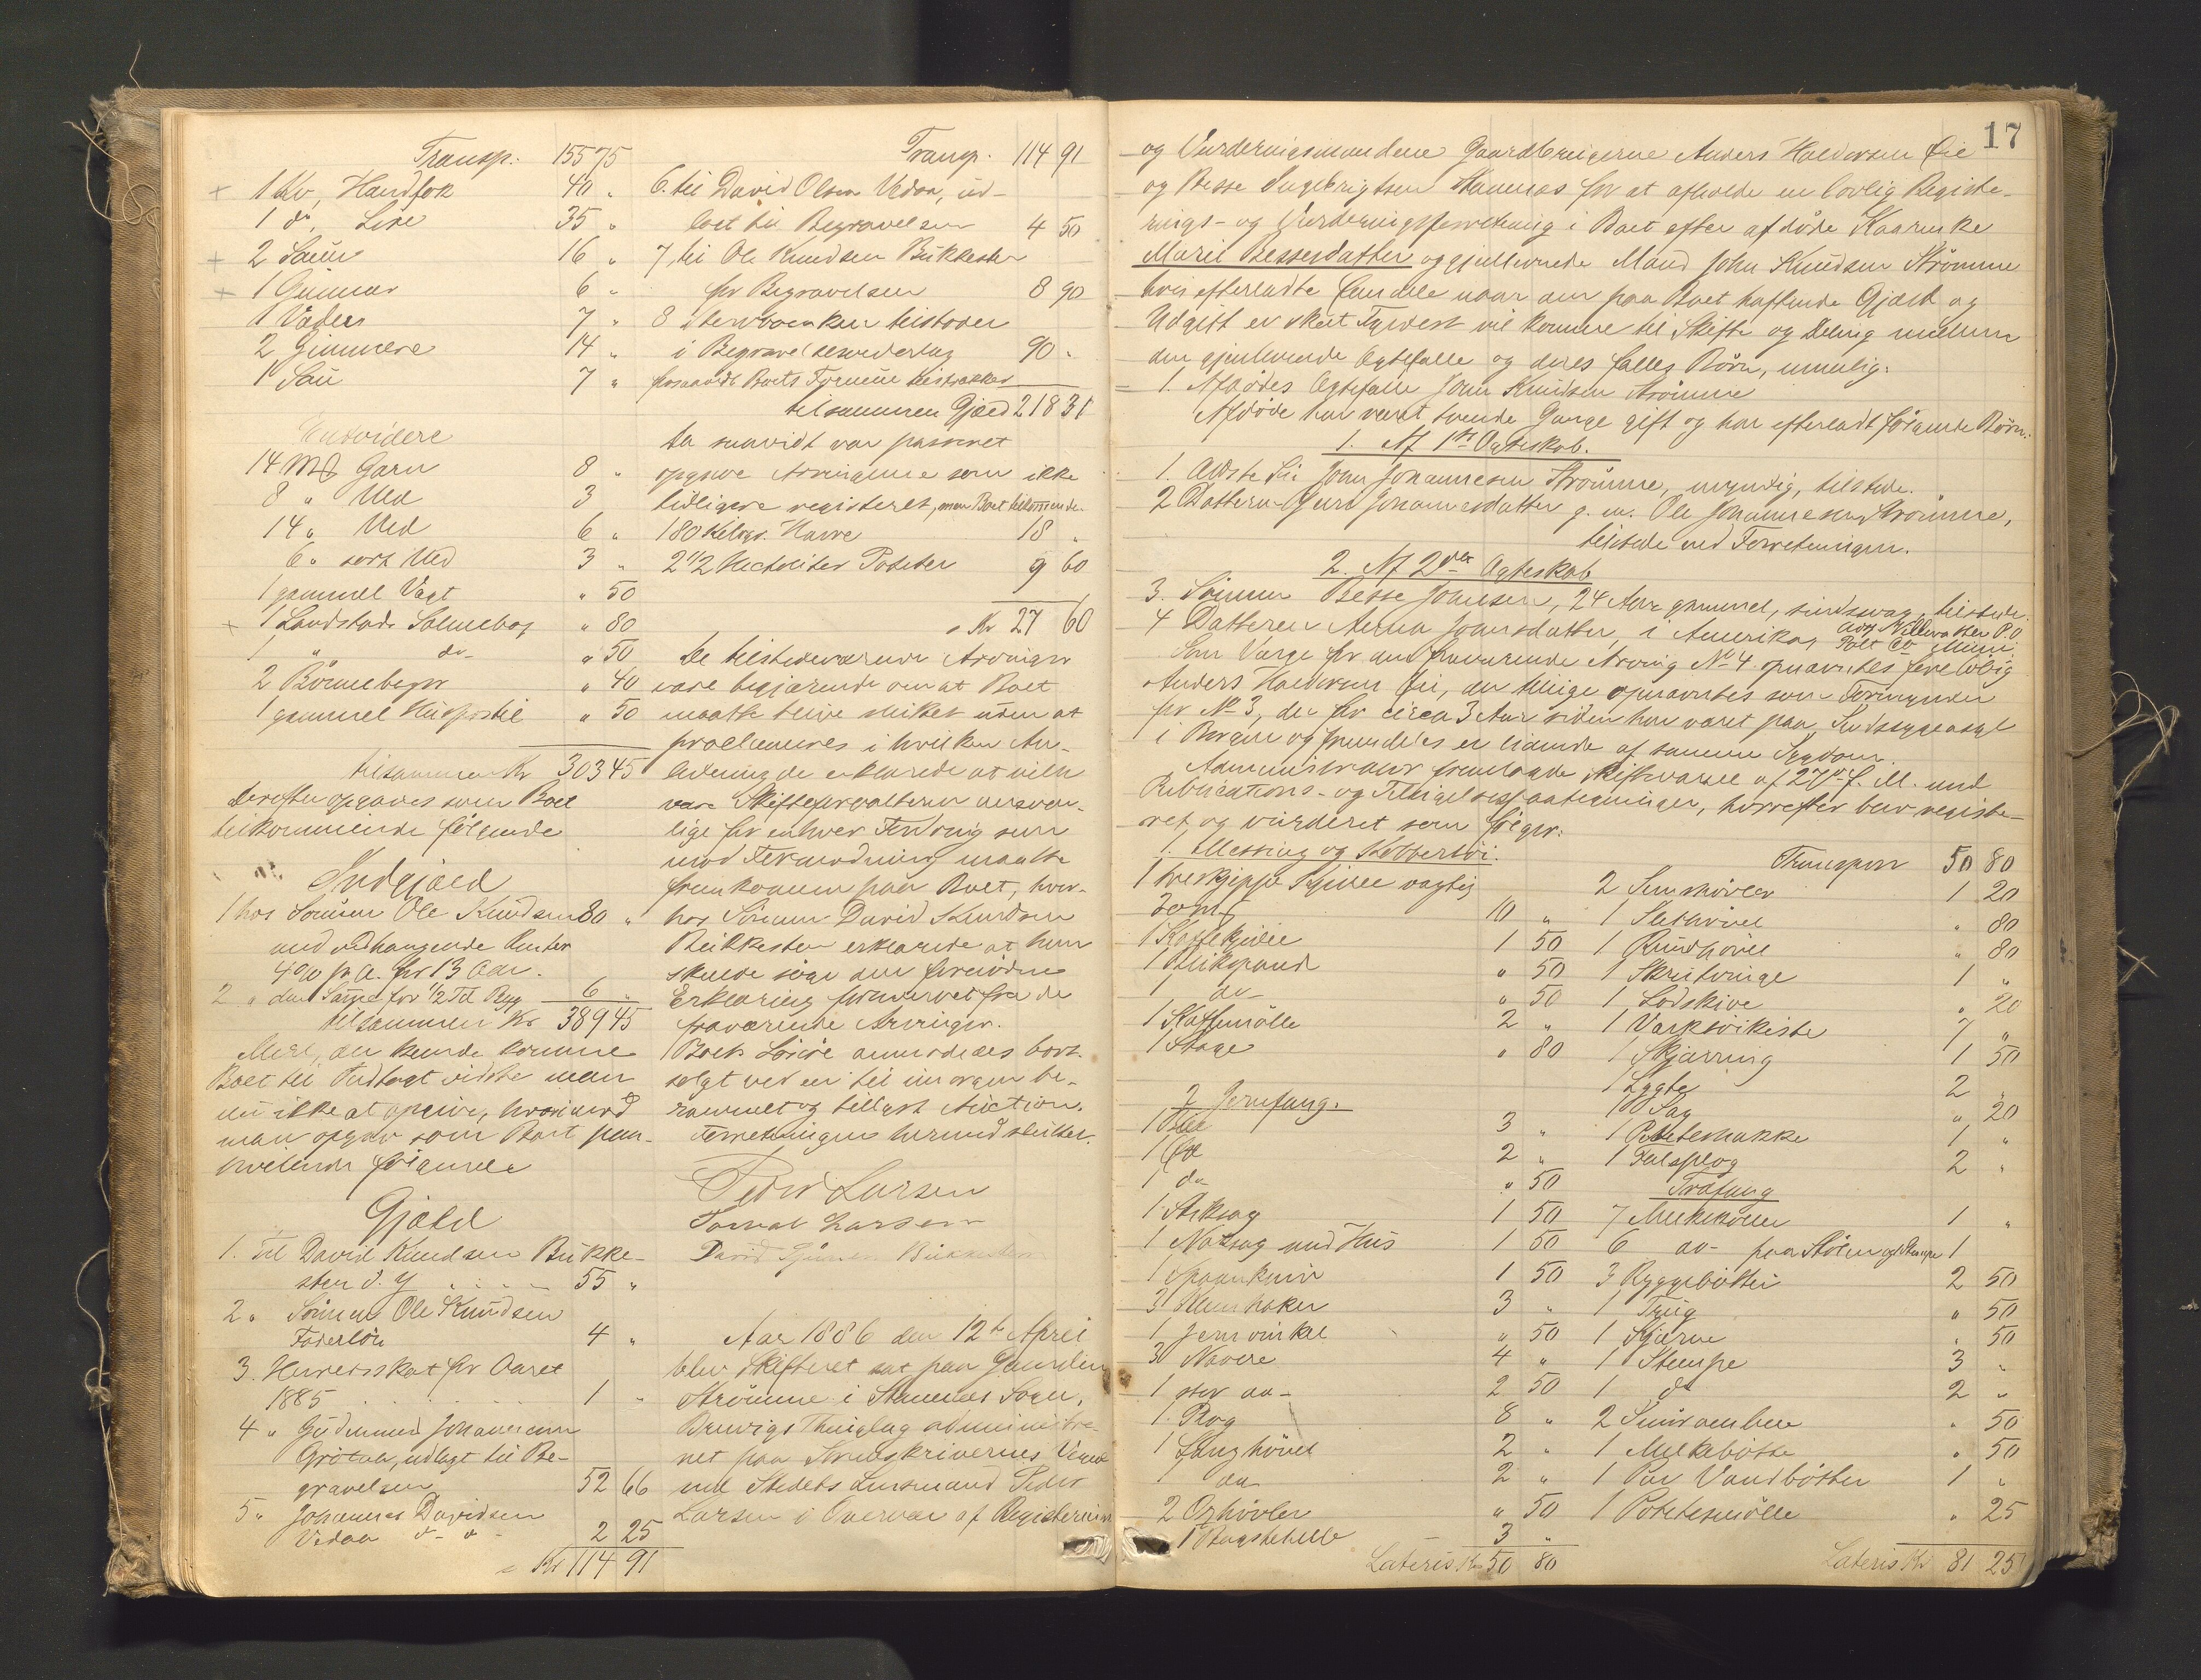 Transp. 155 75
+ 1 Ko, Handfok 40 "
1 do, Line 35 "
+ 2 Sauer 16 "
+ 1 Gimmer 6 "
1 Væder 7 "
2 Gimmere 14 "
1 Sau 7 "
Endvidere
14 Garn 8 "
8 " Uld 3
14 " Uld 6 "
6 " sort Uld 3 "
1 gammel Vægt " 50
+ 1 Landstads Salmebog " 80
1 " do- " 50
2 Bønnebøger " 40
1 gammel Huspostil " 50
tilsammen Kr 303 45
derefter opgaves som Boet
tilkommende følgende
Indgjæld
1 hos Sønnen Ole Knudsen 80 "
med vedhængende Renter
4% p. a. for 13 Aar.
2 " den Samme for 1/2 Td Byg 6 "
tilsammen Kr 389 45
Mere, der kunde komme
Boet til Indtægt vidste man
nu ikke at opgive, hvorimod
man opgav som Boet paa-
hvilende følgende
Gjæld
1. Til David Knudsen Bukke-
sten d. y. 55 "
2 " Sønnen Ole Knudsen
Foderløn 4 "
3. Herredsskat for Aaret
1885 1 "
4 " Gudmund Johannesen
Grötaa, udlagt til Be-
gravelsen 52 66
5 " Johannes Davidsen
Vedaa d- o- 2 25
Kr 114 91
Transp. 114 91
6. til David Olsen Vedaa, ud-
lagt til Begravelsen 4 50
7, til Ole Knudsen Bukkesten
for Begravelsen 8 90
8 Stervboenken tilstodes
i Begravelsesvederlag 90 "
forsaavidt Boets Formue tilstrækker
tilsammen Gjæld 218 31
da saavidt var passeret
opgave Arvingerne som ikke
tidligere registeret, men Boet tilkommende
180 Kilogr. Havre 18 "
2 1/2 Hectoliter Poteter 9 60
Kr 27 60
De tilstedeværende Arvinger
vare begjærende om at Boet
maatte blive sluttet uden at
proclameres i hvilken An-
ledning de erklærede at ville
være Skifteforvalteren ansvar-
lige for enhver Fordring som
mod Formodning maatte
fremkomme paa Boet, hver-
hos Sønnen David Knudsen
Bukkesten erklærede at han
skulde søge den fornødne
Erklæring fremskaffet fra de
fraværende Arvinger.
Boets Løsøre anmodedes bort-
solgt ved en til imorgen be-
rammet og tillyst Auction.
Forretningen hermed sluttet.
Peder Larsen
Tomas Larsen
David Bukkesten
Aar 1886 den 12te April
blev Skifteret sat paa Gaarden
Strömme i Stamnes Sogn,
Bruvigs Thinglag administre-
ret paa Sorenskriverens Vegne
ved Stedets Lensmand Peder
Larsen i Overvær af Registerings
17
og Vurderingsmændene Gaardbrugerne Anders Haldorsen Öie
og Besse Ingebrigtsen Stamnes for at afholde en lovlig Registe-
rings- og Vurderingsforretning i Boet efter afdøde Kaarenke
Marit Bessesdatter og gjenlevende Mand John Knudsen Strömme
hvis efterladte Formue naar den paa Boet hæftende Gjæld og
Udgift er skeet Fyldest vil komme til Skifte og Deling mellem
den gjenlevende Ægtefælle og deres fælles Børn, nemlig:
1. Afdødes Ægtefælle John Knudsen Strömme
Afdøde har været tvende Gange gift og har efterladt følgende Børn:
1. Af 1ste Ægteskab.
1. Ældste Søn John Johannesen Strömme, myndig, tilstede.
2 Datteren Guri Johannesdatter g. m. Ole Johannesen Strömme,
tilstede ved Forretningen.
2. Af 2det Ægteskab
3. Sønnen Besse Johnsen, 24 Aar gammel, sindssvag, tilstede.
4 Datteren Anna Johnsdatter, i Amerika, adr. P. O.
Polk Co Minn.
Som Værge for den fraværende Arving No 4. opnævntes foreløbig
Anders Haldorsen Öie, der tillige opnævntes som Formynder
for No 3, der for circa 3 Aar siden har været paa Sindssygeasyl
i Bergen og fremdeles er lidende af samme Sygdom.
Administrator fremlagde Skiftevarsel af 27de f. M. med
Publications- og Tilsigelsespaategninger, hvorefter blev registe-
ret og vurderet som følger:
1. Messing og Kobbertøi.
1 treskjeppe Kjedel vægtig
20 10 "
1 Kaffekjedel 1 50
1 Blikspand " 50
1 do- " 50
1 Kaffemølle 2 "
1 Stage " 80
2 Jernfang.
1 3 "
1 Öxe 2 "
1 do " 50
1 Stiksag 1 50
1 Notsag med Hus 1 50
1 Spaankniv 1 50
3 3 "
1 Jernvinkel " 50
3 Navere 4 "
1 stor do- 2 50
1. Plog 8 "
1 Langhövel 2 "
1 do 2 "
2 Ozhövler " 50
1 Bagstehelle 3 "
Lateris Kr 50 80
Transport 50 80
2 Simshövler 1 20
1 Sletshövel " 80
1 Rundhövel " 80
1 Skrutvinge 1 "
1 Lodskive " 20
1 Værktöikiste 7 "
1 Skjæring 1 50
1 Lygte 2 "
1 Sag " 20
1 Poteteshakke 1 "
1 Fulsplog 2 "
Træfang
7 Melkekoller 1 "
6 do- paa Stølen og Stampe 1
3 Ryggebøtter 2 50
1 Trug " 50
1 Kjerne " 50
1 Stampe 3 "
1 do 2 "
2 Smörambere " 50
1 Melkebøtte " 50
1 Par Vandbøtter 1 "
1 Potetesmölle " 25
Lateris Kr 81 25